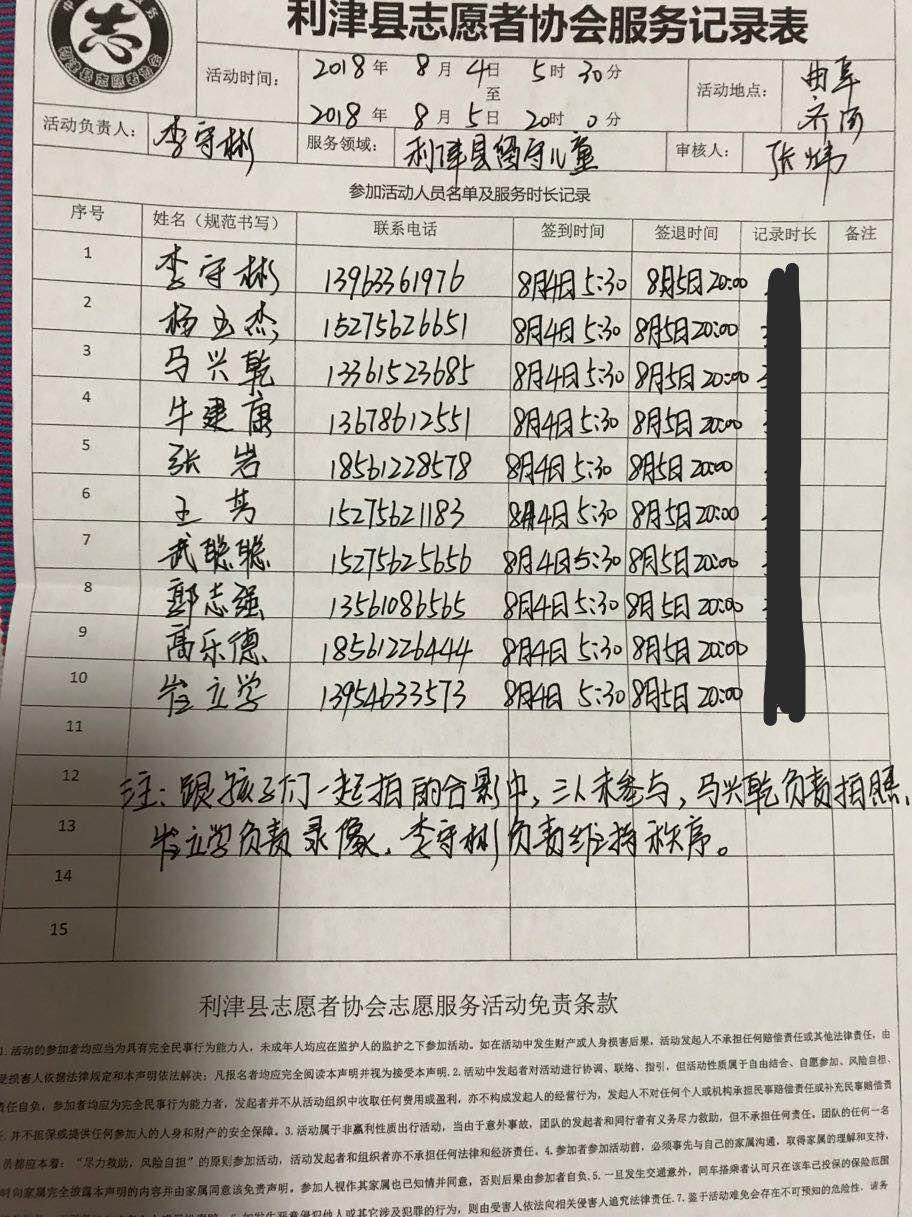 利津县志愿者协会服务记录表
利津县志愿者协会
志
活动时间： 2018 年 8 月 4日 5时 30分
至
2018 年 8 月 5日 20时 0分
活动地点： 曲阜
济南
活动负责人： 李守彬 服务领域： 利津县留守儿童 审核人： 张炜
参加活动人员名单及服务时长记录
序号 姓名（规范书写） 联系电话 签到时间 签退时间 记录时长 备注
1 李守彬 13963361976 8月4日 5:30 8月5日 20:00
2 杨玉杰 15275626651 8月4日 5:30 8月5日 20:00
3 马兴乾 13361523685 8月4日 5:30 8月5日 20:00
4 牛建康 13678612551 8月4日 5:30 8月5日 20:00
5 张岩 18561228578 8月4日 5:30 8月5日 20:00
6 王 15275621183 8月4日 5:30 8月5日 20:00
7 武聪聪 15275625656 8月4日 5:30 8月5日 20:00
8 郭志强 13561086565 8月4日 5:30 8月5日 20:00
9 高乐德 18561226444 8月4日 5:30 8月5日 20:00
10 立学 13954633573 8月4日 5:30 8月5日 20:00
11
12 注：跟孩子们一起拍的合影中，三人未参与，马兴乾负责拍照、
13 立学负责录像、李守彬负责维持秩序。
14
15
利津县志愿者协会志愿服务活动免责条款
1.活动的参加者均应当为具有完全民事行为能力人，未成年人均应在监护人的监护之下参加活动。如在活动中发生财产或人身损害后果，活动发起人不承担任何赔偿责任或其他法律责任，由
受损害人依据法律规定和本声明依法解决；凡报名者均应完全阅读本声明并视为接受本声明.2.活动中发起者对活动进行协调、联络、指引，但活动性质属于自由结合、自愿参加、风险自担、
责任自负，参加者均应为完全民事行为能力者，发起者并不从活动组织中收取任何费用或盈利，亦不构成发起人的经营行为，发起人不对任何个人或机构承担民事赔偿责任或补充民事赔偿责
任.并不担保或提供任何参加人的人身和财产的安全保障。3.活动属于非赢利性质出行活动，当由于意外事故，团队的发起者和同行者有义务尽力救助，但不承担任何责任。团队的任何一名
员都应本着：“尽力救助，风险自担”的原则参加活动，活动发起者和组织者亦不承担任何法律和经济责任。4.参加者参加活动前，必须事先与自己的家属沟通，取得家属的理解和支持，
时向家属完全披露本声明的内容并由家属同意该免责声明。参加人视作其家属也已知情并同意，否则后果由参加者自负.5.一旦发生交通意外，同车搭乘者认可只在该车己投保的保险范围
如发生恶意侵犯他人或其它涉及犯罪的行为，则由受害人依法向相关侵害人追究法律责任.7.鉴于活动难免会存在不可预知的危险性．请务